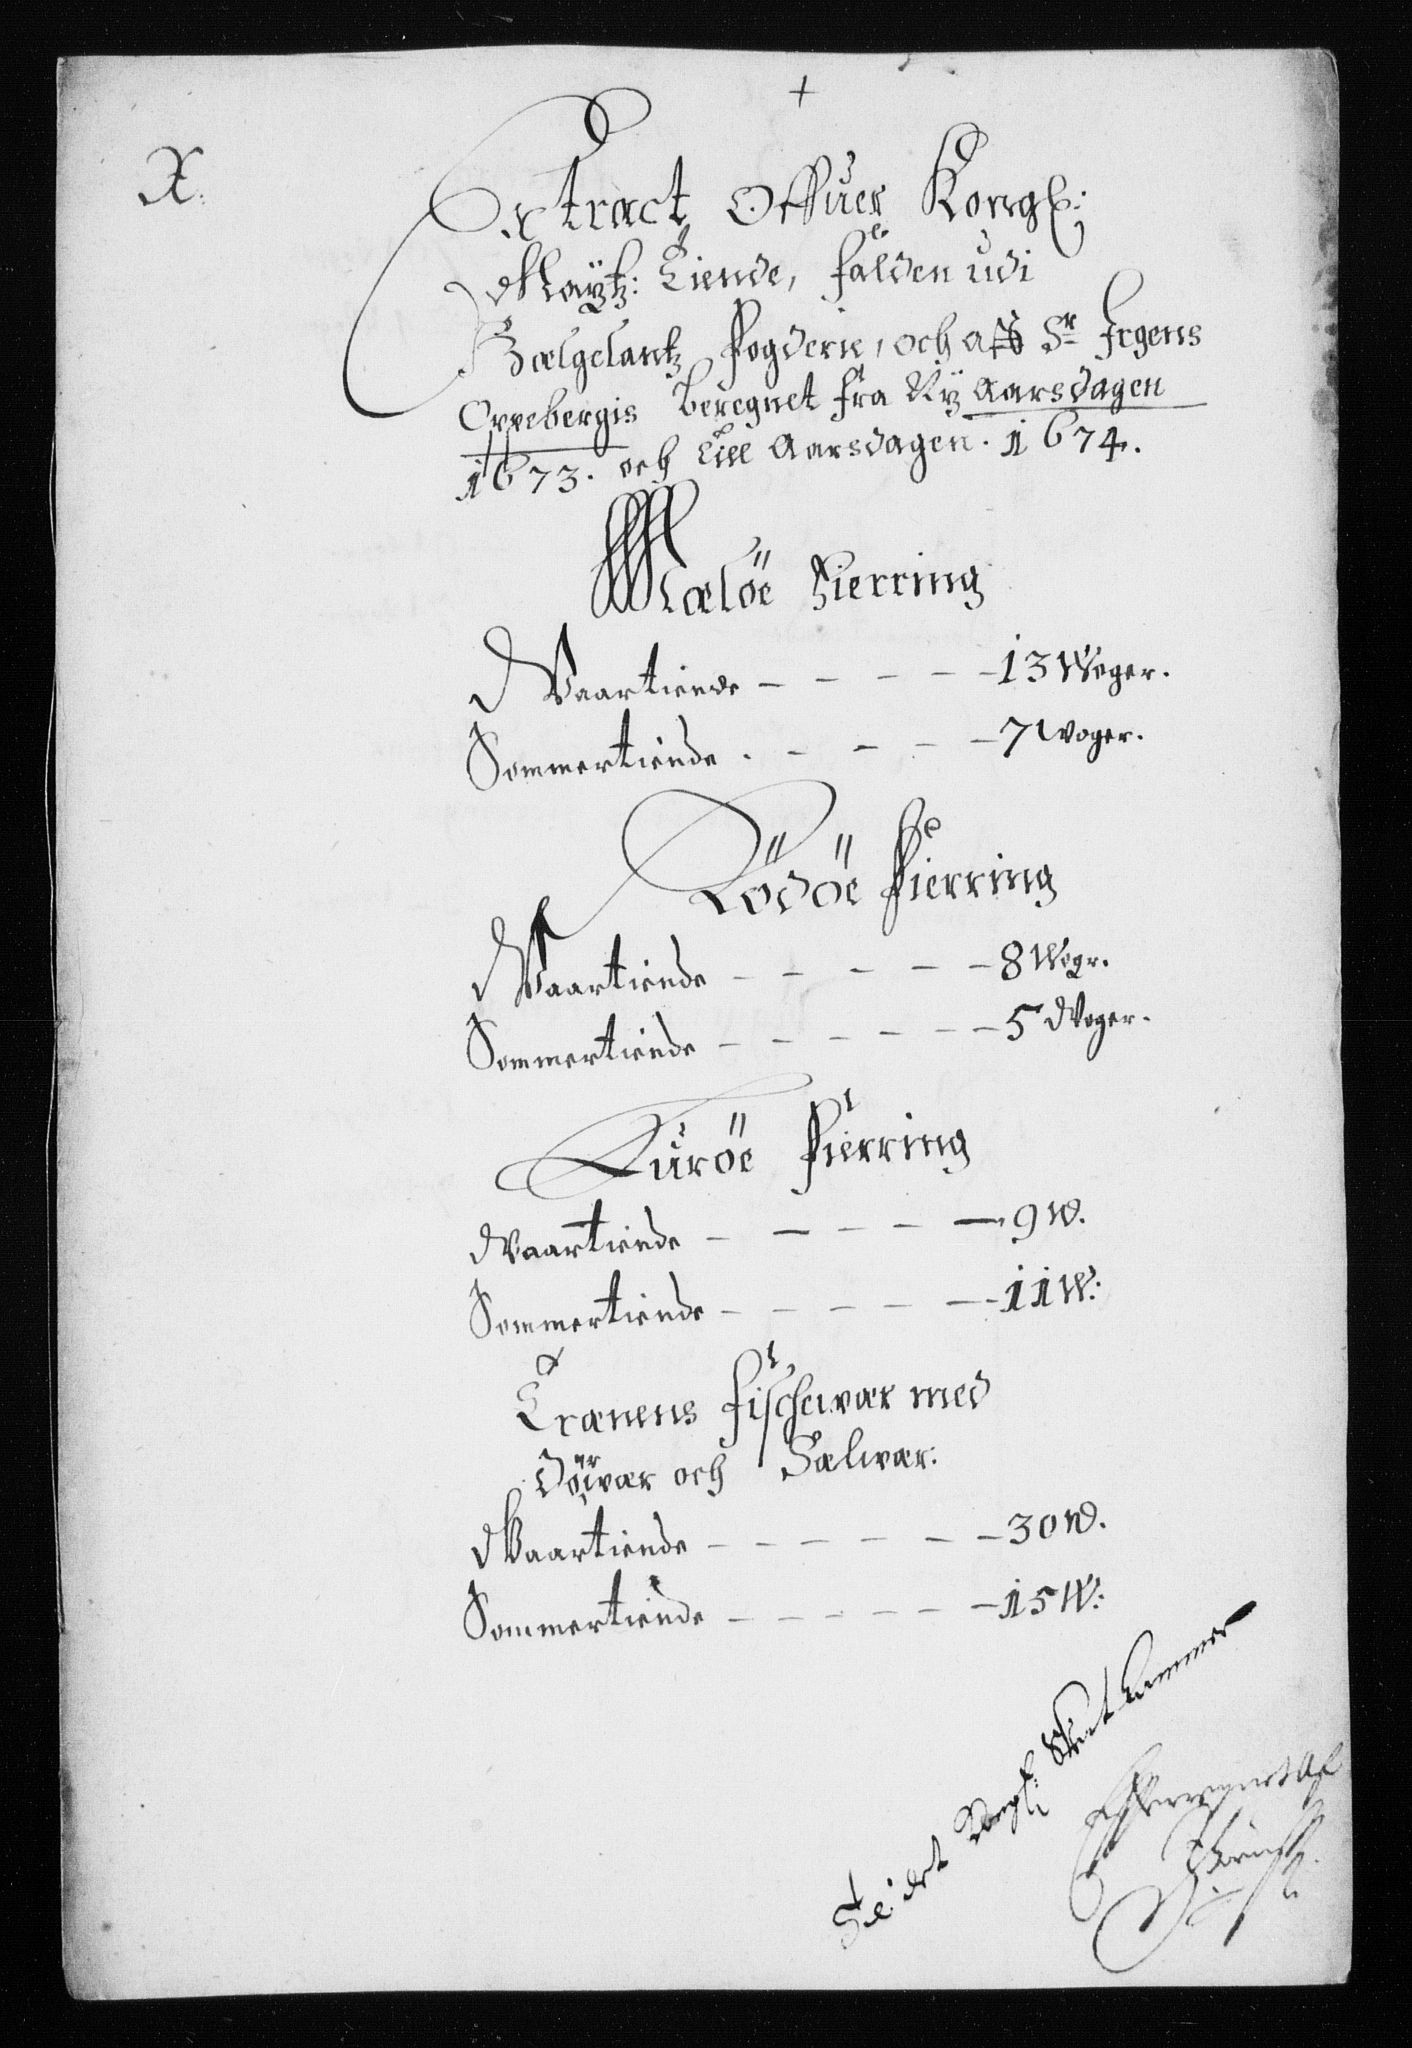 +
X.
Extract Offuer Kongl:
Maytz: Tiende, falden udi
Helgelantz Fogderie, och aff Sr Irgens
Oppebergis beregnet fra Ny Aarsdagen
1673. och till Aarsdagen. 1674.
Meløe Fierring
Waartiende - - - - - 13 Woger.
Sommertiende . - - - - 7 Woger.
Rödöe Fierring
Waartiende - - - - - 8 Wogr.
Sommertiende - - - - - - 5 Woger.
Luröe Fierring
Waartiende - - - - - 9 W.
Sommertiende - - - - - - 11 W:
Trænens Fischewær med
och Sælwær:
Waartiende - - - - - - 30 W.
Sommertiende - - - - - - 15 W:
det Kongl: Skatkammer